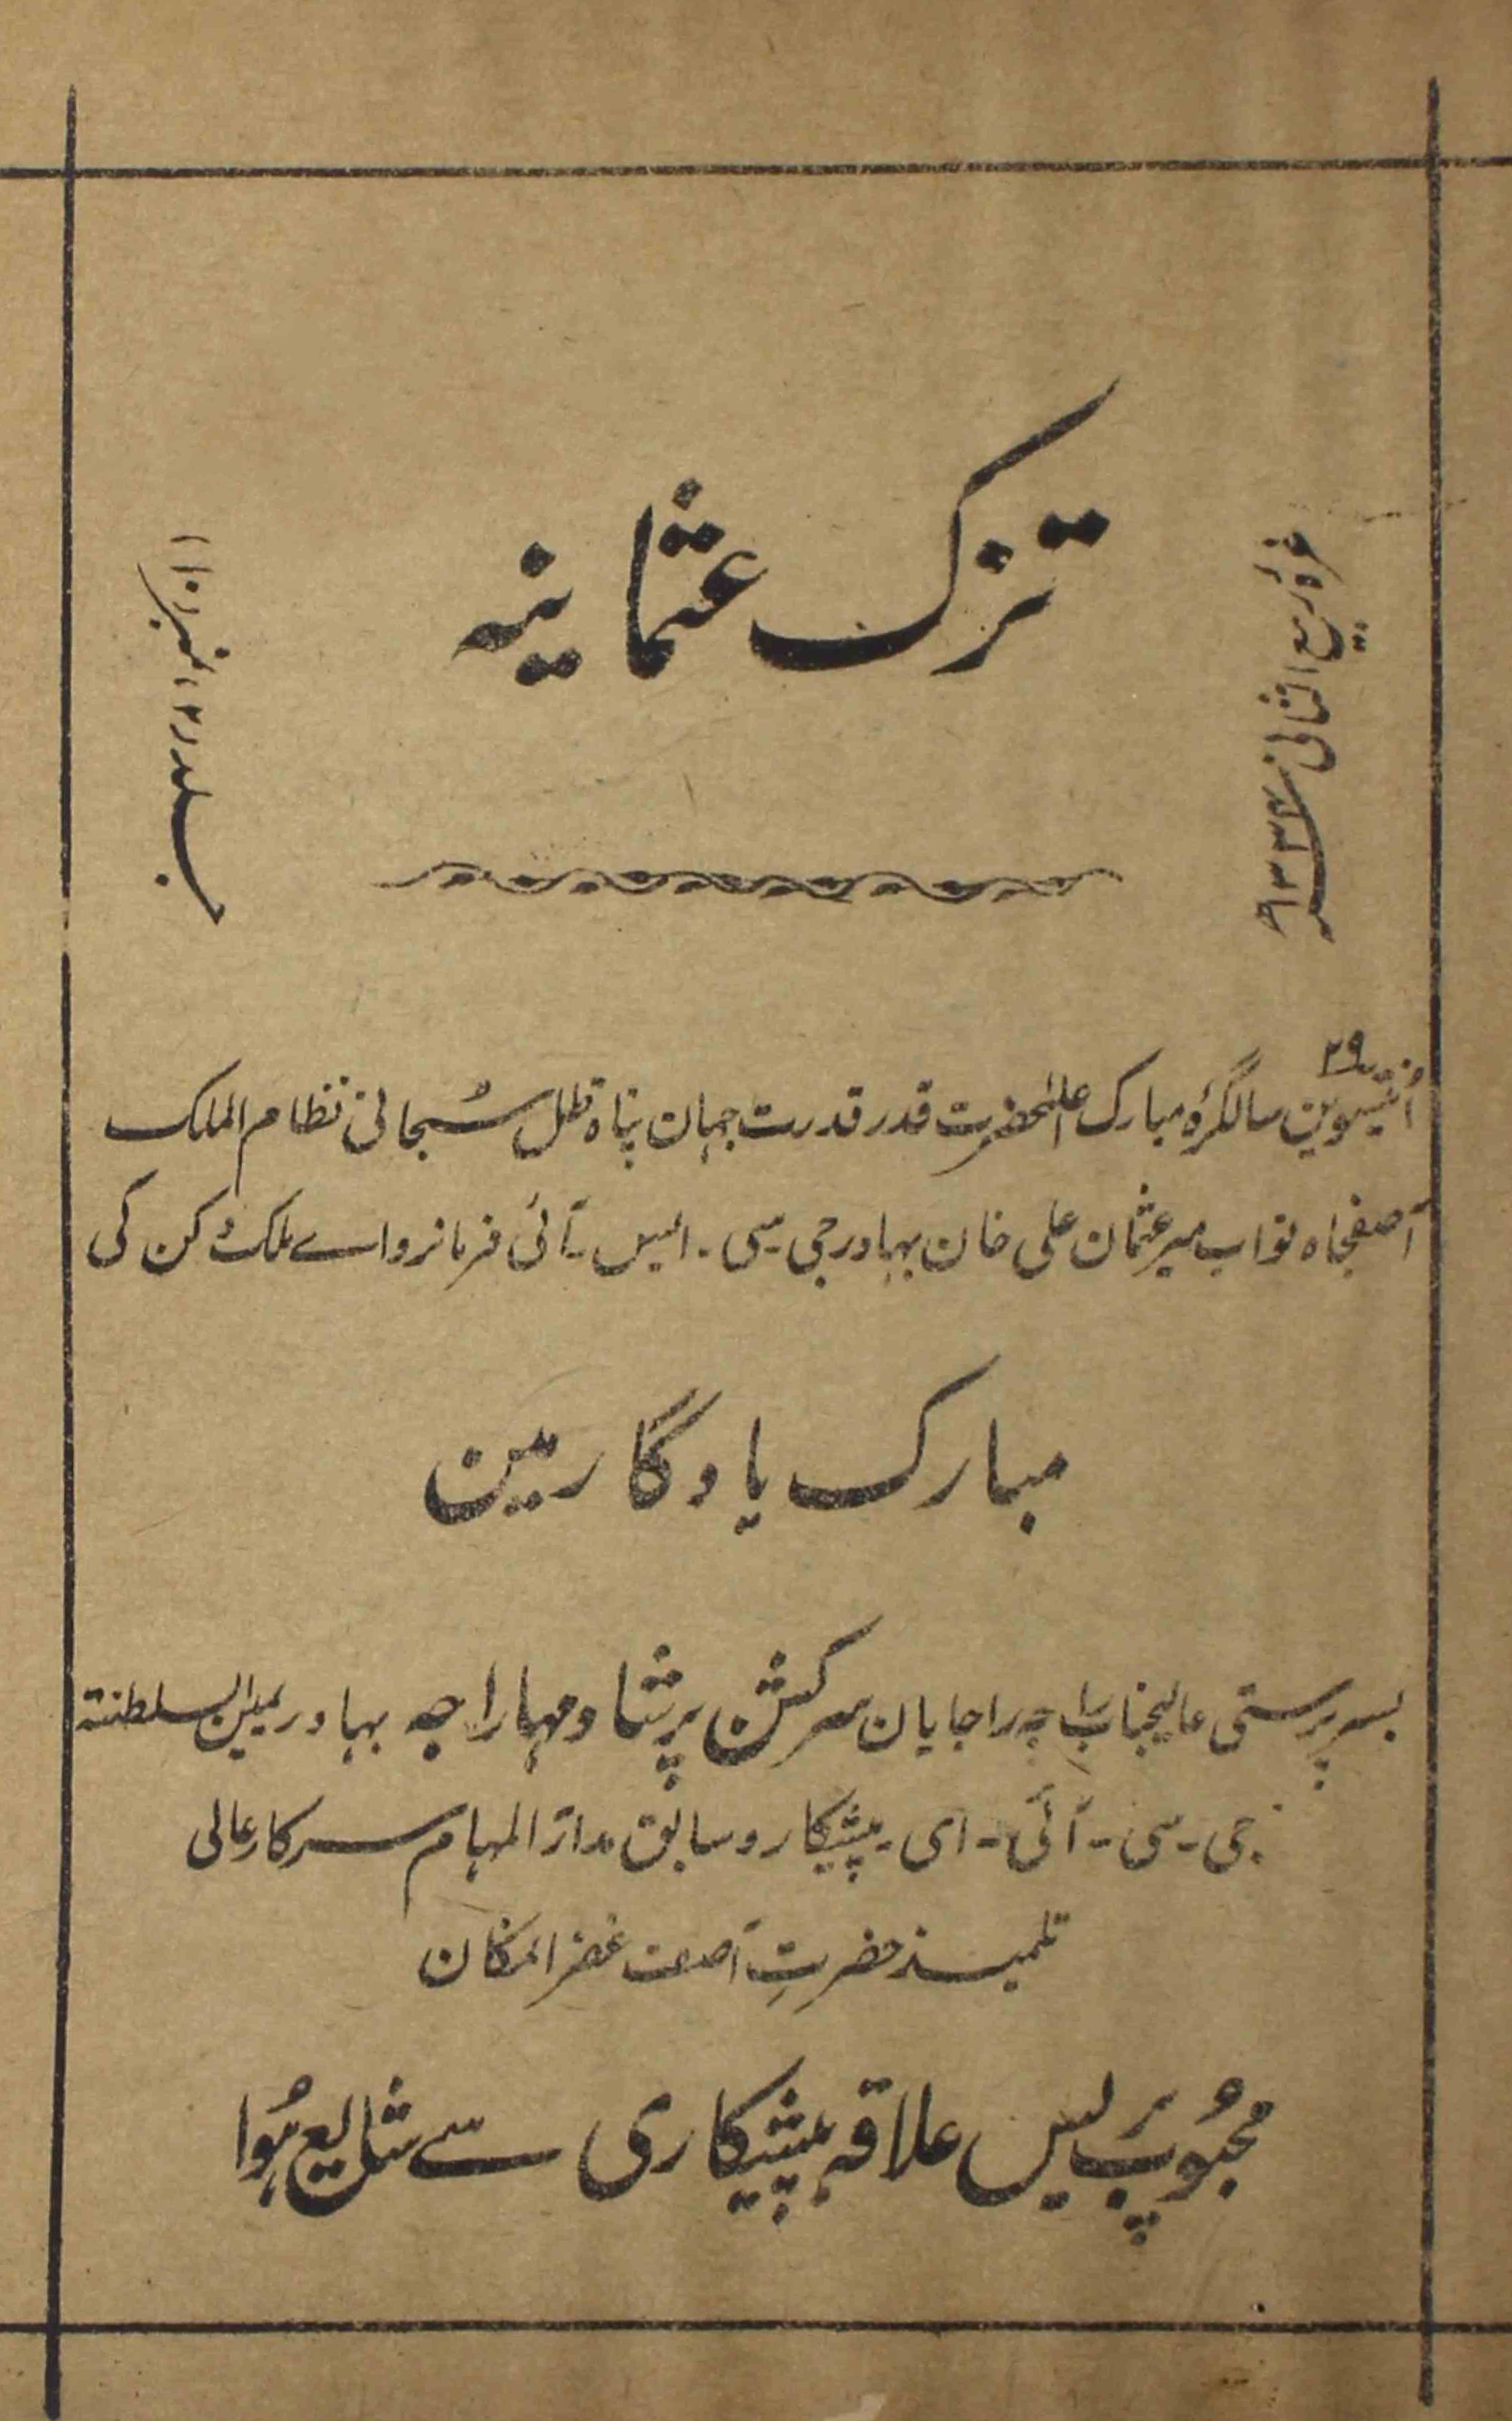 تزک عثمانیہ
غرۂ ربیع الثانی سنہ
جلد (۲) نمبر (۱۰)
۲۹
اُنتیسوین سالگرۂ مبارک اعلٰحضرت قدر قدرت جہان پناہ ظل سُبحانی نظام الملک
آصفجاہ نواب میر عثمان علی خان بہادر جی ۔ سی ۔ ایس ۔ آئی فرمانرواے ملک دکن کی
مبارک یادگار مین
بسرپرستی عالیجناب راجہ راجایان سر کشن پرشاد مہاراجہ بہادر یمین السلطنتہ
جی ۔ سی ۔ آئی ۔ ای ۔ پیشکار و سابق مدار المہام سرکار عالی
تلمیذ حضرتِ آصف غفر المکان
محبُوب پریس علاقہ پیشکاری سے شایع ہُوا